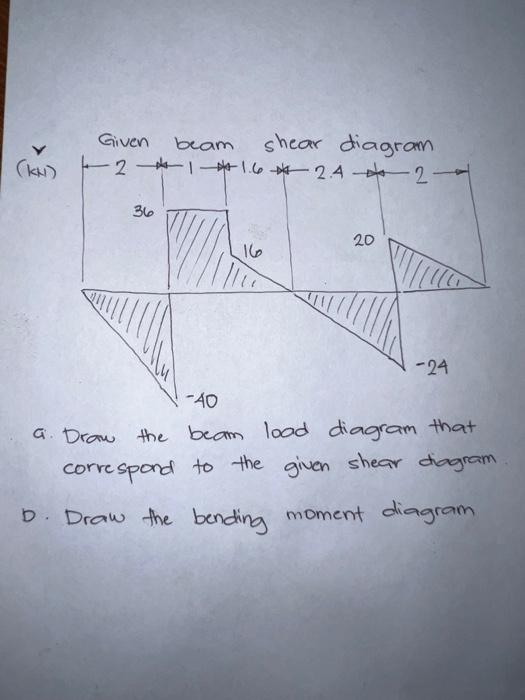 Given beam shear diagram
V
(kN)
2 1 1.6 2.4 2
36
16
20
-24
-40
a. Draw the beam load diagram that
correspond to the given shear diagram.
b. Draw the bending moment diagram